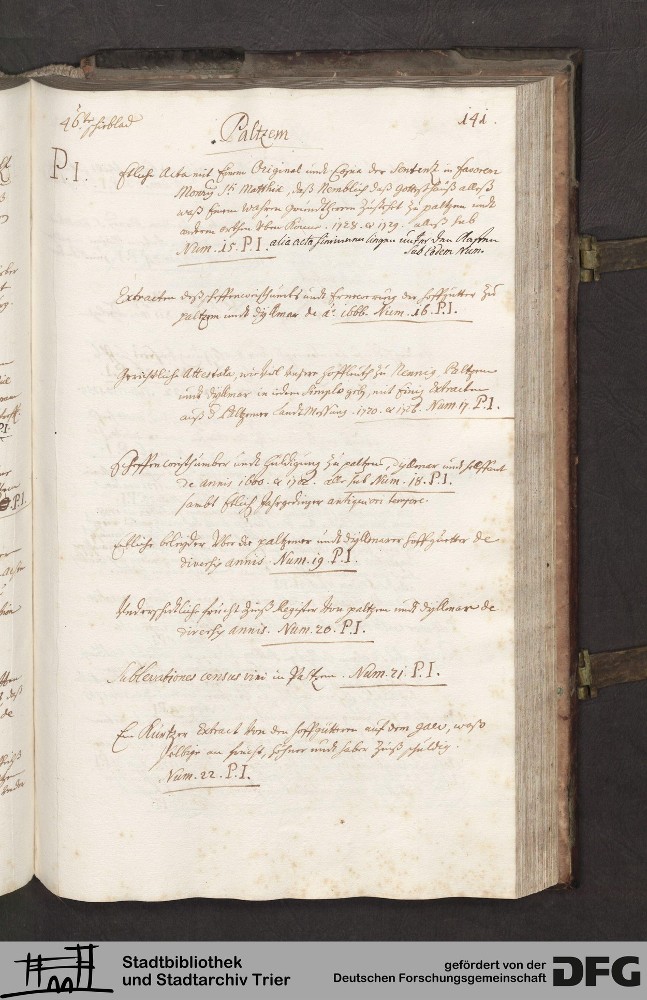 46te schieblad
141.
Paltzem
P. I.
Etliche Acta mit Einem Original und Copia der Sententz in favorem
Monrij Sti Matthiæ, daß Nemblich daß Gottshauß alleß
waß Einem wahren grundtherrn zustehet zu paltzem undt
anderen orthen 1728. et 1729. alleß sub
Num. 15. P. I. alia acta liegen unter den
sub eodem Num.
Extracten deß scheffenweisthumbs undt Erneuerung der hoffgütter zu
paltzem undt dyllmar de ao 1666. Num. 16. P. I.
Gerichtliche Attestata, wieviel unsere hoffleuth zu Nennig, Paltzem
undt dyllmar in simplo geben, mit Einig Extracten
auß d. Paltzemer landtmessung. 1720. et 1726. Num 17. P. I.
Scheffenweisthumber undt huldigung zu paltzem, dyllmar und
de annis 1600. et 1702. alle sub Num. 18. P. I.
sambt Etlich Jahrgedinger antiquiori tempore.
Etliche beleyder uber die paltzemer undt dyllmarer hoffguetter de
diversis annis. Num. 19. P. I.
Underschiedtliche frucht Zinß Register von paltzem undt dyllmar de
diversis annis. Num. 20. P. I.
Sublevationes census vini in Paltzem. Num. 21. P. I.
Ein Kurtzer Extract von den hoffgütteren auf dem gaw, waß
selbige an frucht, hühner undt haber Zinß schuldig.
Num. 22. P. I.
Stadtbibliothek
und Stadtarchiv Trier
gefördert von der
Deutschen Forschungsgemeinschaft
DFG